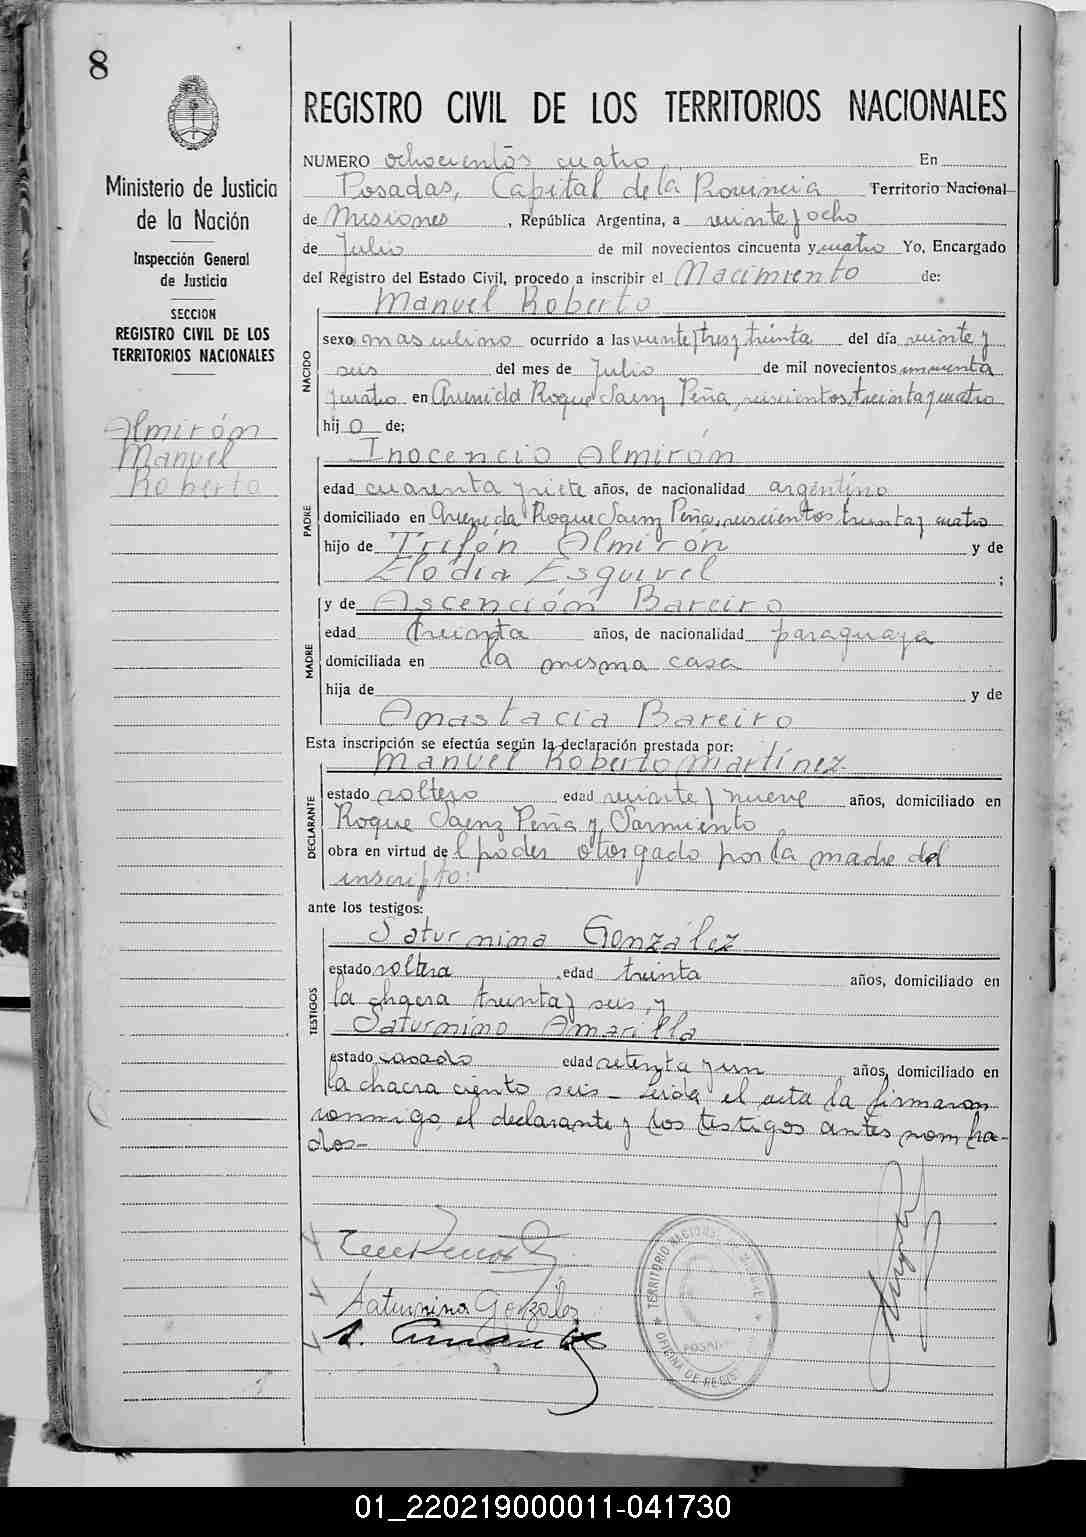 8
Ministerio de Justicia
de la Nación
Inspección General
de Justicia
SECCION
REGISTRO CIVIL DE LOS
TERRITORIOS NACIONALES
Almirón
Manuel
Roberto
REGISTRO CIVIL DE LOS TERRITORIOS NACIONALES
NUMERO ochocientos cuatro En
Posadas, Capital de la Provincia Territorio Nacional
de Misiones, República Argentina, a veinte y ocho
de Julio de mil novecientos cincuenta y cuatro Yo, Encargado
del Registro del Estado Civil, procedo a inscribir el Nacimiento de:
Manuel Roberto
NACIDO
sexo masculino ocurrido a las veinte y tres y treinta del día veinte y
seis del mes de Julio de mil novecientos cincuenta
y cuatro en Avenida Roque Saenz Peña, seiscientos treinta y cuatro
hijo de;
Inocencio Almirón
PADRE
edad cuarenta y siete años, de nacionalidad argentino
domiciliado en Avenida Roque Saenz Peña, seiscientos treinta y cuatro
hijo de Trifón Almirón y de
Elodia Esquivel ;
y de Ascención Bareiro
MADRE
edad treinta años, de nacionalidad paraguaya
domiciliada en la misma casa
hija de y de
Anastacia Bareiro
Esta inscripción se efectúa según la declaración prestada por:
Manuel Roberto Martínez
DECLARANTE
estado soltero edad veinte y nueve años, domiciliado en
Roque Saenz Peña y Sarmiento
obra en virtud del poder otorgado por la madre del
inscripto:
ante los testigos:
Saturnina González
TESTIGOS
estado soltera edad treinta años, domiciliado en
la chacra treinta y seis, y
Saturnino Amarilla
estado casado edad setenta y un años, domiciliado en
la chacra ciento seis - Leida el acta la firmaron
conmigo el declarante y los testigos antes nombra-
dos-
Saturnina González
TERRITORIO NACIONAL DE MISIONES
POSADAS
OFICINA DE REGIS
01_220219000011-041730